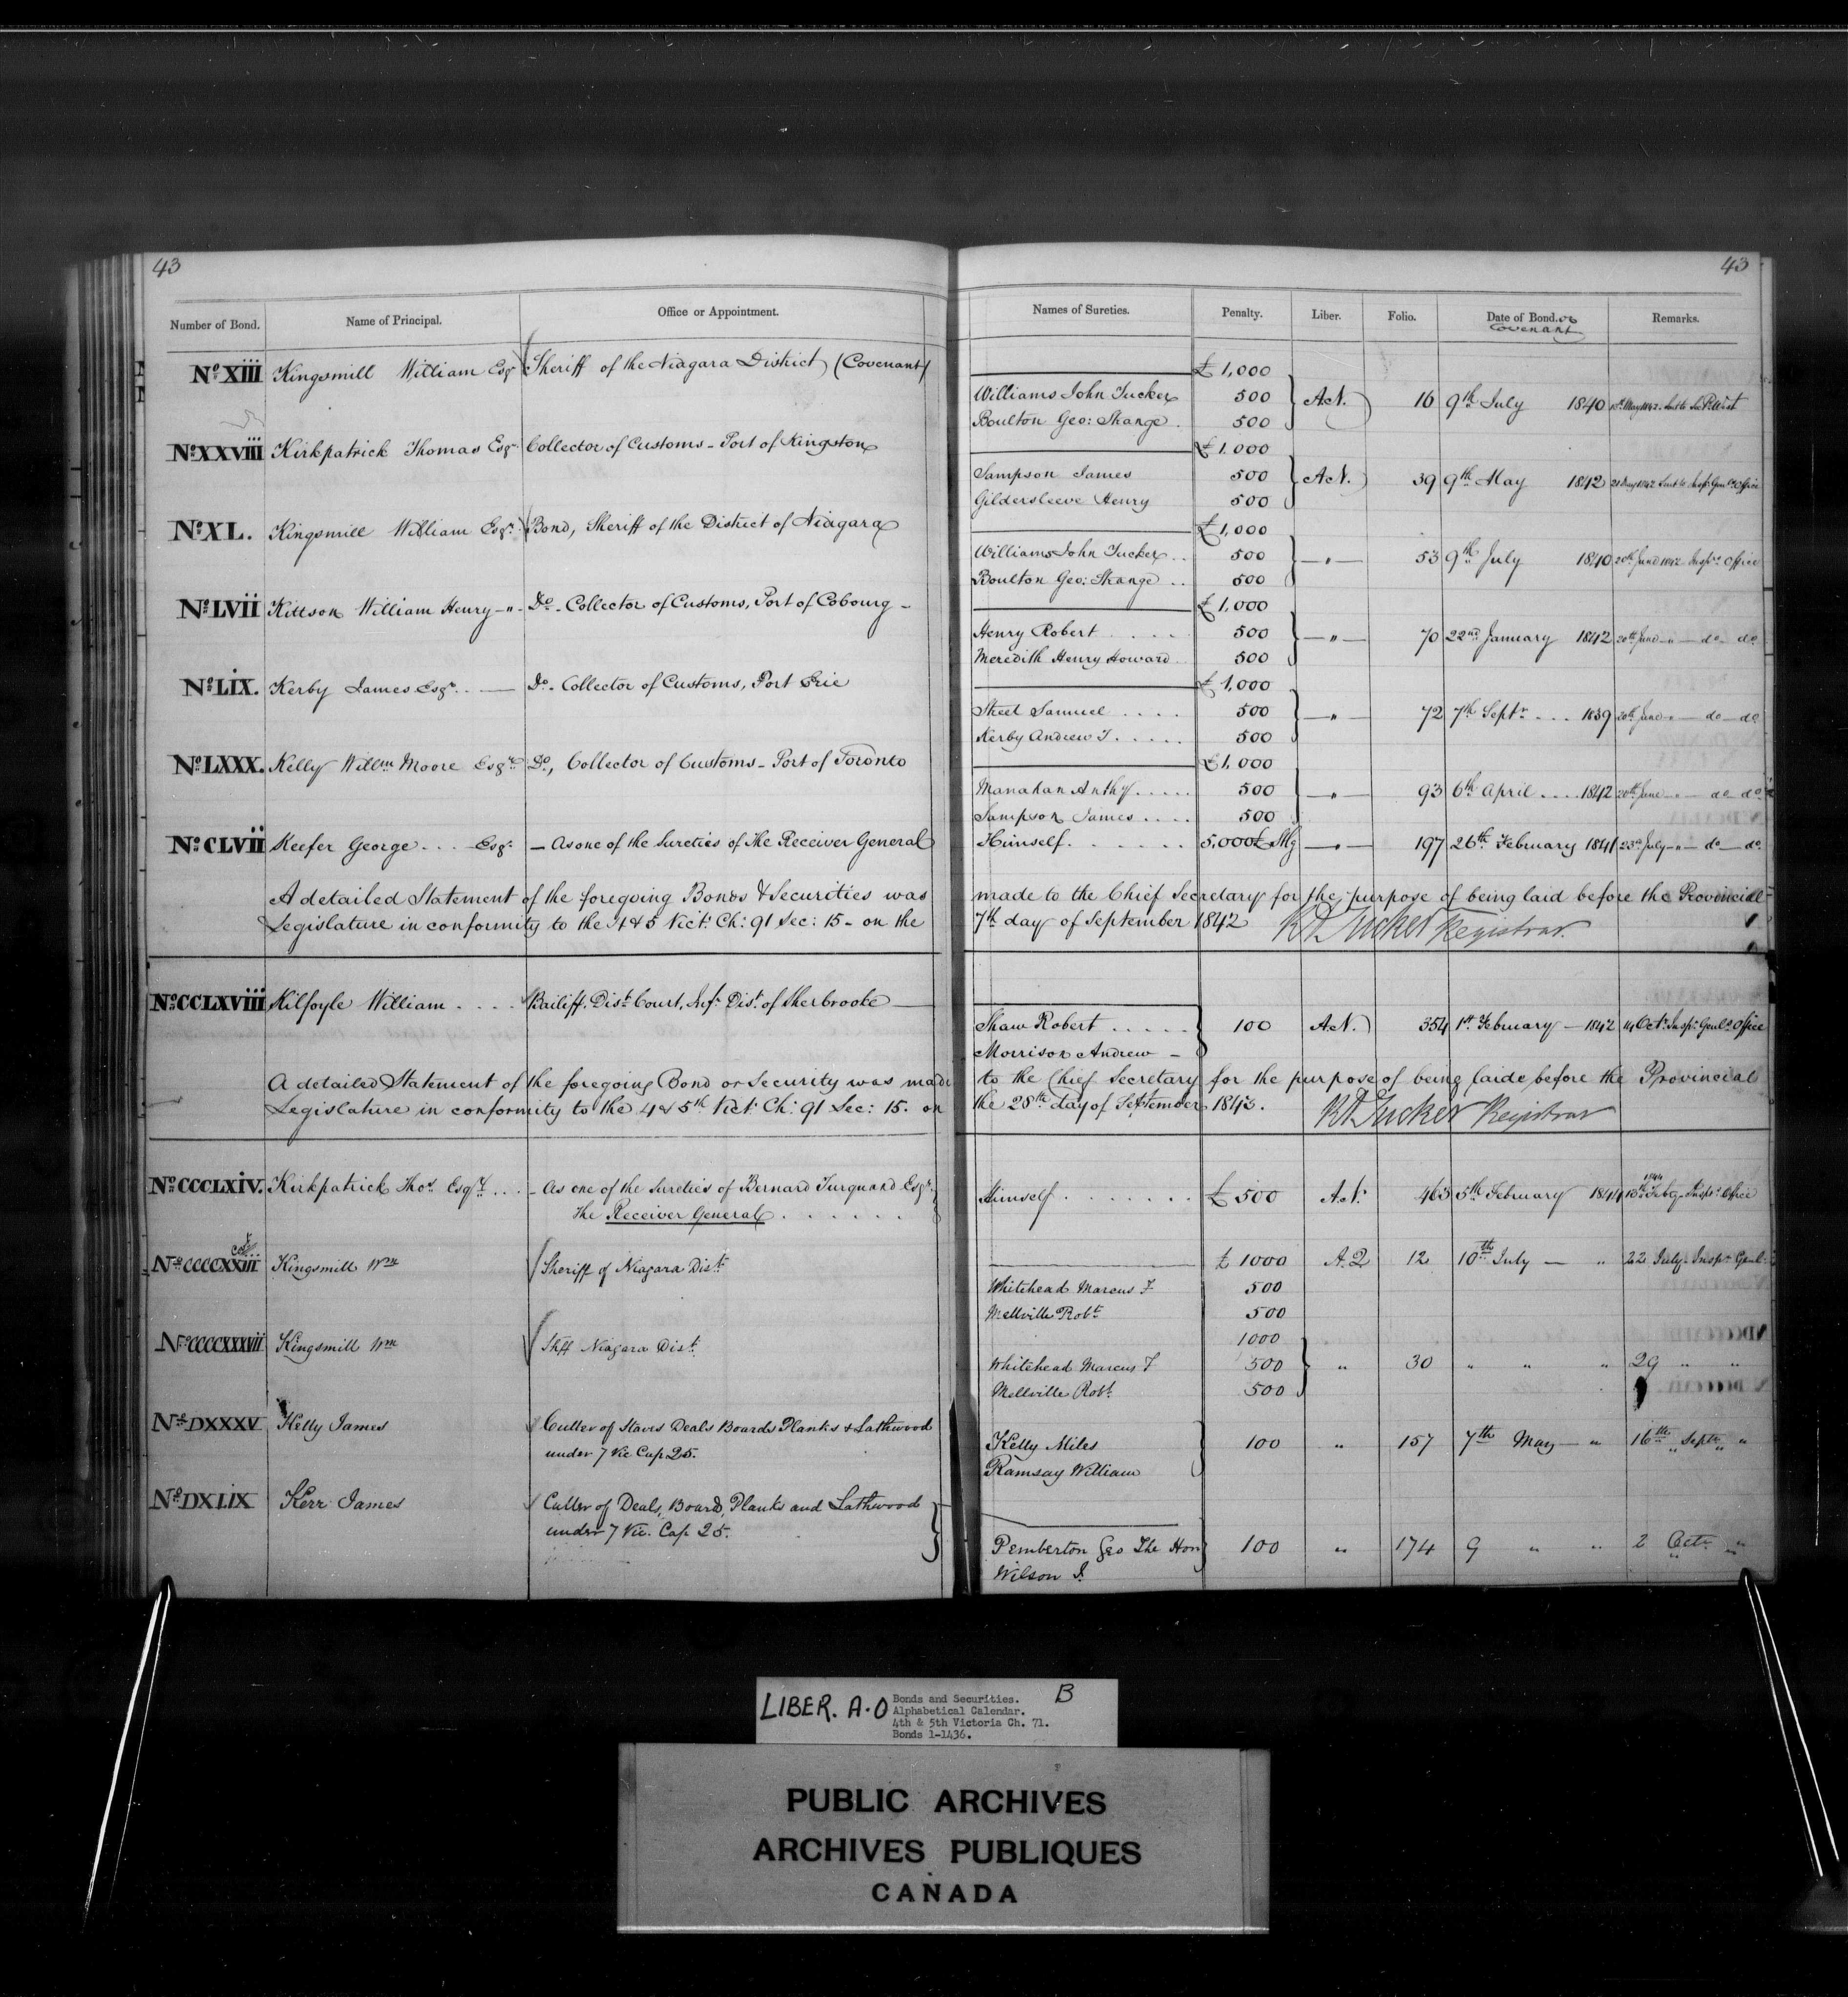 43
43
Number of Bond. Name of Principal. Office or Appointment. Names of Sureties. Penalty. Liber. Folio. Date of Bond. or Covenant Remarks.
£1,000
No. XIII Kingsmill William Esqr. Sheriff of the Niagara District (Covenant)
Williams John Tucker 500 A.N. 16 9th July 1840
Boulton Geo: Strange . 500
£1.000
No. XXVIII Kirkpatrick Thomas Esqr. Collector of Customs - Port of Kingston
Sampson James 500 A.N. 39 9th May 1842 Inspr. Genl. Office
Gildersleeve Henry 500
£1,000
No. XL. Kingsmill William Esqr. Bond, Sheriff of the District of Niagara
Williams John Tucker . . 500 — " — 53 9th July 1840 20th June 1842 Inspr. Office
Boulton Geo: Strange . . 500
£1,000
No. LVII Kittson William Henry - " - Do. Collector of Customs, Port of Cobourg -
Henry Robert . . . . 500 — " — 70 22nd January 1842 20th June - " - do - do.
Meredith Henry Howard . 500
£1,000
No. LIX. Kerby James Esqr. . — Do. Collector of Customs, Port Erie
Street Samuel . . . . 500 — " — 72 7th Septr. . . . 1839 20th June - " - do - do.
Kerby Andrew T. . . . . 500
£1,000
No. LXXX. Kelly Willm Moore Esqre. Do, Collector of Customs - Port of Toronto
Manahan Anthy. . . . . 500 — " — 93 6th April . . . . 1842 20th June - " - do do.
Sampson James . . . . 500
No. CLVII Keefer George . . . . Esqr. — As one of the Sureties of the Receiver General Himself. . . . . . . 5,000£ Stg — " — 197 26th February 1841 23d July - " - do - do.
A detailed Statement of the foregoing Bonds & Securities was made to the Chief Secretary for the purpose of being laid before the Provincial
Legislature in conformity to the 4 & 5 Vict: Ch: 91 Sec: 15 - on the 7th day of September 1842 RA Tucker Registrar.
No. CCLXVIII Kilfoyle William . . . . Bailiff. Dist. Court, Infr. Dist. of Sherbrooke —
Shaw Robert . . . . . 100 A.N. 354 1st February — 1842 14 Octr. Inspr. Genl. Office
Morrison Andrew -
A detailed Statement of the foregoing Bond or Security was made to the Chief Secretary for the purpose of being laide before the Provincial
Legislature in conformity to the 4 & 5th Vict: Ch: 91 Sec: 15. on the 28th day of September 1843. RA Tucker Registrar
No. CCCLXIV. Kirkpatrick Thos. Esqr. . . . - As one of the Sureties of Bernard Turquand Esqr. Himself . . . . . . . £500 A.N. 463 5th February 1844 Feby. Inspr. Office
1844
the Receiver General . . . . . .
No. CCCCXXIII Kingsmill Wm Sheriff of Niagara Dist. £1000 A.2 12 10th July — " 22 July Inspr Genl.
Whitehead Marcus F 500
Mellville Robt. 500
No. CCCCXXXVII Kingsmill Wm Shff Niagara Dist. 1000
Whitehead Marcus F 500 " 30 " " " 29 " "
Mellville Robt. 500
No. DXXXV Kelly James Culler of Staves Deals Boards Planks & Lathwood
under 7 Vic Cap 25.
Kelly Miles 100 " 157 7th May — " 16th Septr. "
Ramsay William
No. DXLIX Kerr James Culler of Deals, Board, Planks and Lathwood
under 7 Vic. Cap 25.
Pemberton Geo The Hon 100 " 174 9 " " 2 Octr. "
Wilson I.
LIBER. A.O Bonds and Securities. B
Alphabetical Calendar.
4th & 5th Victoria Ch. 71.
Bonds 1-1436.
PUBLIC ARCHIVES
ARCHIVES PUBLIQUES
CANADA